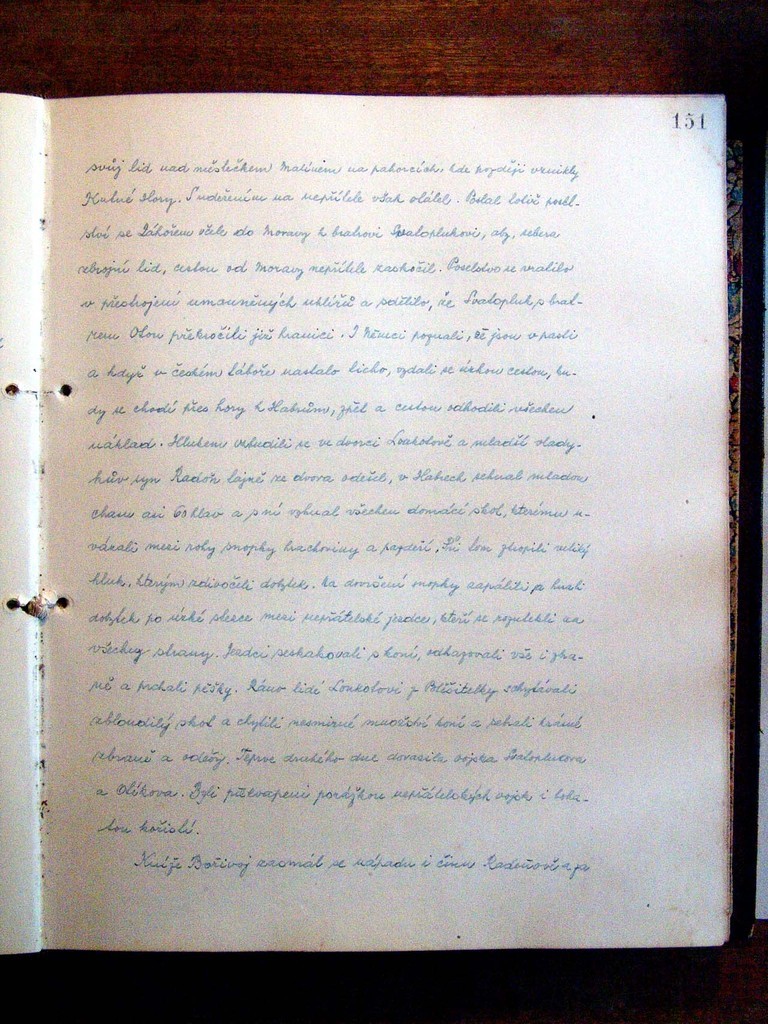 151
svůj lid nad městečkem Malínem na pahorcích, kde později vznikly
Kutné Hory. S udeřením na nepřítele však otálel. Poslal totiž posel-
ství se Záhořem včele do Moravy k bratrovi Svatoplukovi, aby, sebera
zbrojný lid, cestou od Moravy nepřítele zaskočil. Poselstvo se vrátilo
v přestrojení umouněných uhlířů a sdělilo, že Svatopluk s brat-
rem Otou překročili již hranici. I Němci poznali, že jsou v pasti
a když v českém táboře nastalo ticho, vydali se úzkou cestou, ku-
dy se chodí přes hory k Habrům, zpět a cestou odhodili všechen
náklad. Hlukem vzbudili se ve dvorci Lonkotově a mladší vlady-
kův syn Radoň tajně ze dvora odešel, v Habrech sehnal mladou
chasu asi 60 hlav a s ní vyhnal všechen domácí skot, kterému u-
vázali mezi rohy snopky hrachoviny a pazdeří. Při tom ztropili veliký
hluk, kterým zdivočeli dobytek. Na dovršení snopky zapálili a hnali
dobytek po úzké stezce mezi nepřátelské jezdce, kteří se rozutekli na
všechny strany. Jezdci seskakovali s koní, odhazovali vše i zbra-
ně a prchali pěšky. Ráno lidé Lonkotovi z schytávali
zbloudilý skot a chytili nesmírné množství koní a sebrali krásné
zbraně a oděvy. Teprve druhého dne dorazila vojska Svatoplukova
a Otíkova. Byli překvapeni porážkou nepřátelských vojsk i boha-
tou kořistí.
Kníže Bořivoj zasmál se nápadu i činu Radoňově a ja